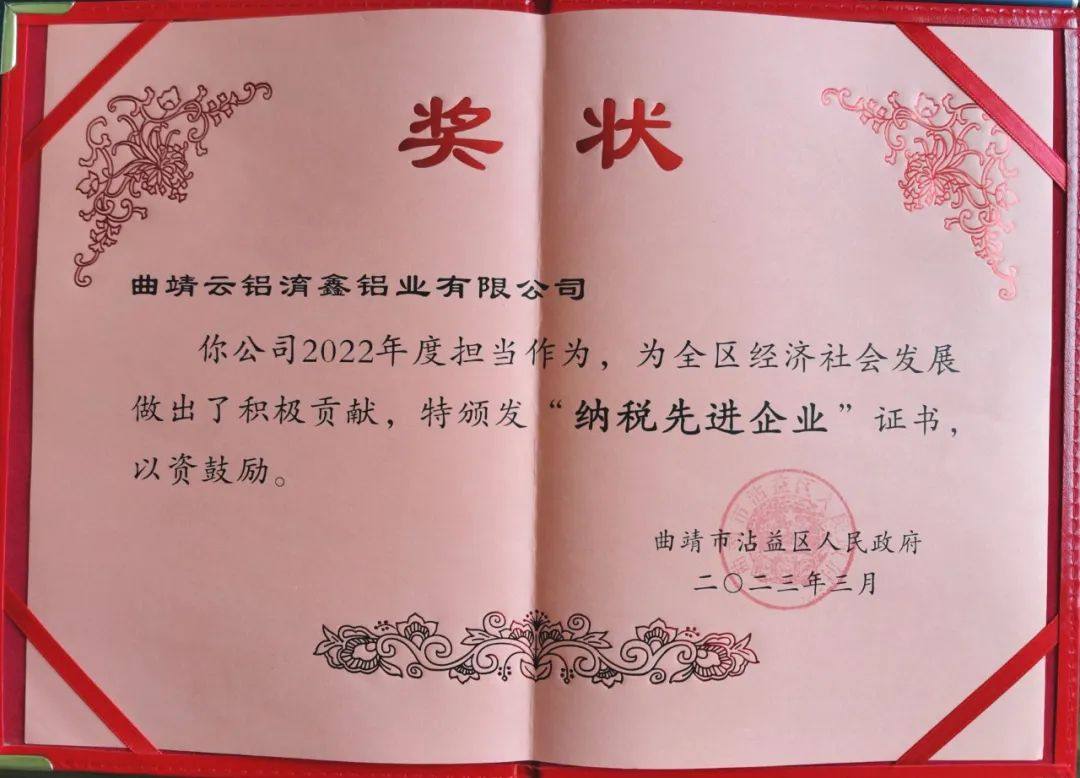 奖状
曲靖云铝淯鑫铝业有限公司
你公司2022年度担当作为，为全区经济社会发展
做出了积极贡献，特颁发“纳税先进企业”证书，
以资鼓励。
曲靖市沾益区人民政府
二〇二三年三月